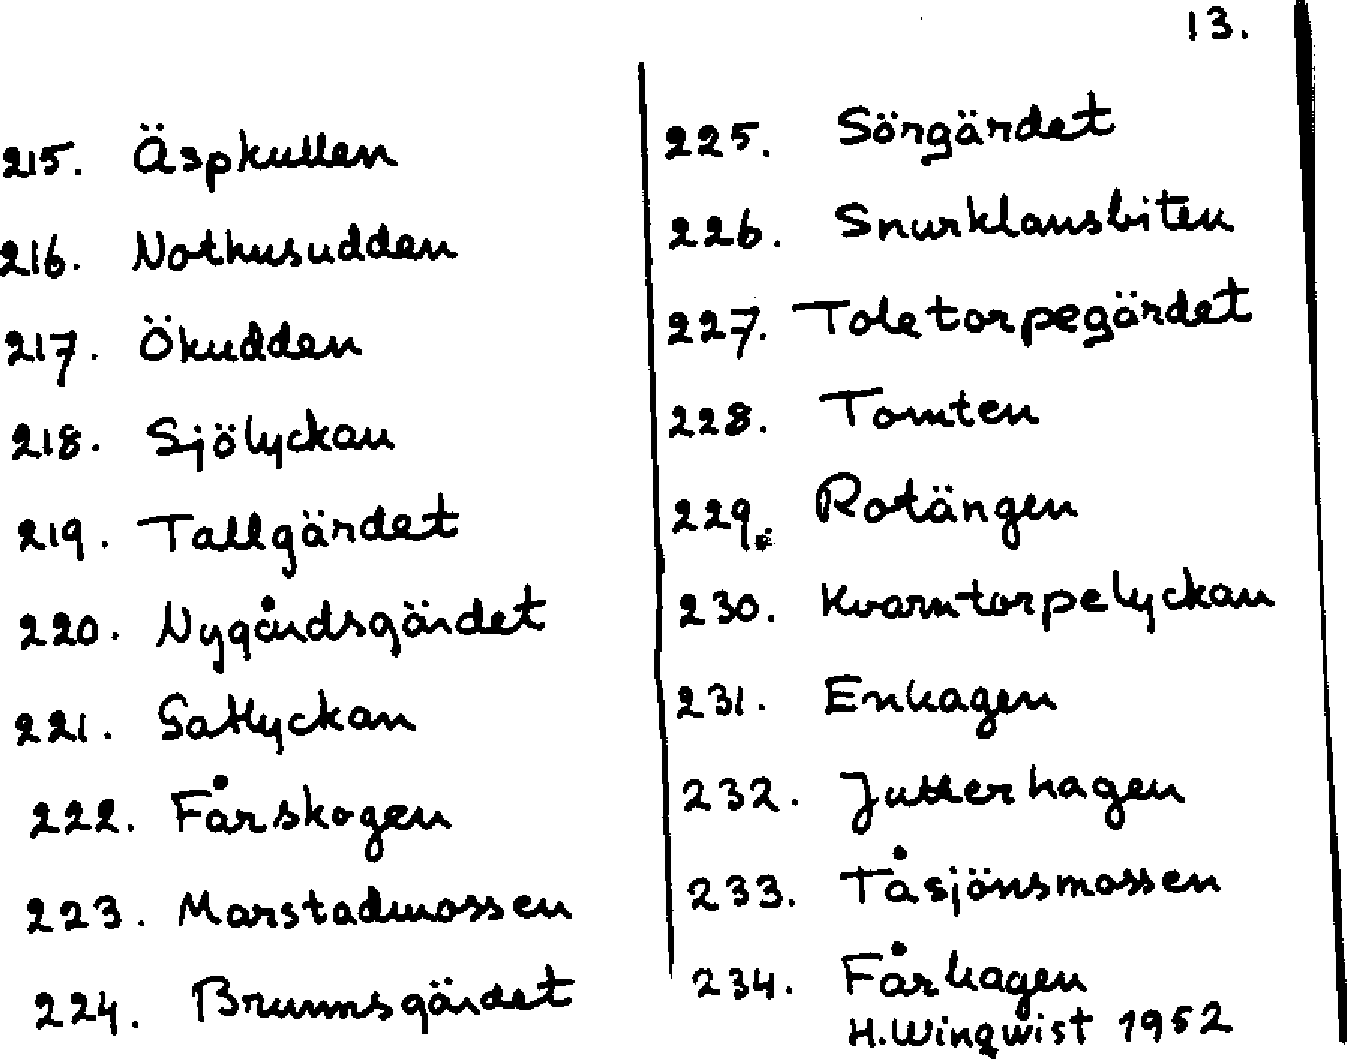 13.
215. Äspkullen
216. Nothusudden
217. Ökudden
218. Sjölyckan
219. Tallgärdet
220. Nygårdsgärdet
221. Satlyckan
222. Fårskogen
223. Marstadmossen
224. Brunnsgärdet
225. Sörgärdet
226. Snurklansbiten
227. Toletorpegärdet
228. Tomten
229. Rotängen
230. Kvarntorpelyckan
231. Enhagen
232. Jutterhagen
233. Tåsjönsmossen
234. Fårhagen
H. Winqwist 1952